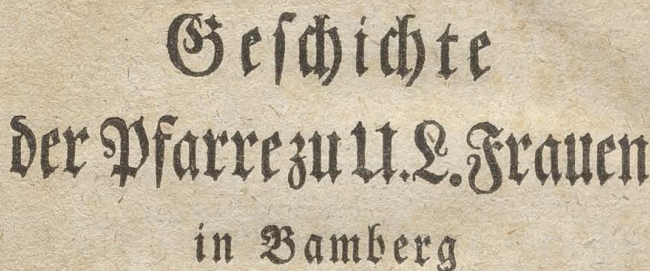 Geſchichte
der Pfarre zu U. L. Frauen
in Bamberg